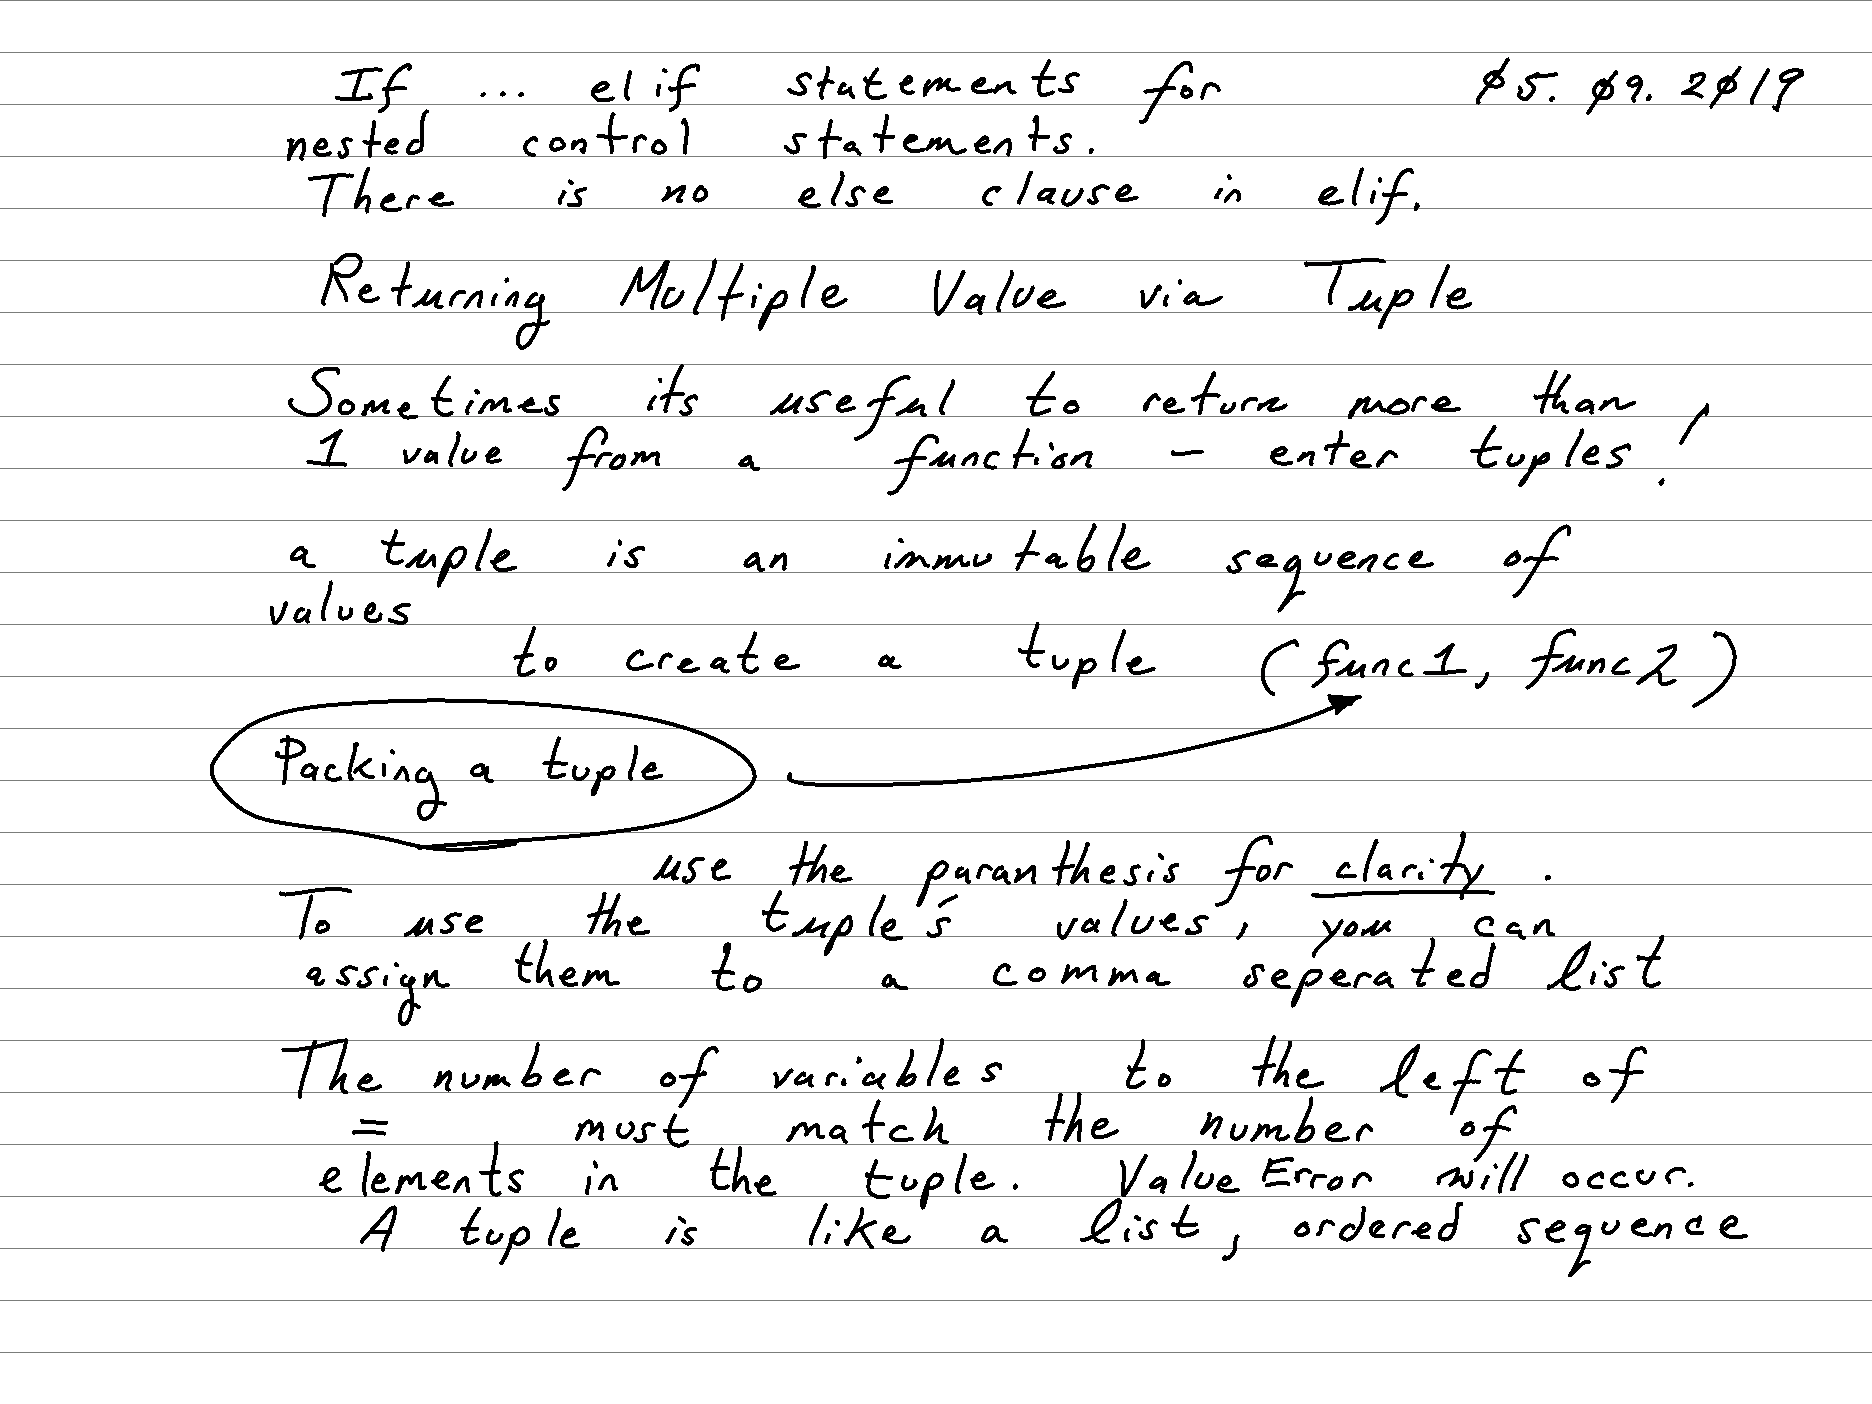 If ... elif statements for 05. 09. 2019
nested control statements.
There is no else clause in elif.
Returning Multiple Value via Tuple
Sometimes its useful to return more than
1 value from a function - enter tuples!
a tuple is an immutable sequence of
values
to create a tuple (func1, func2)
Packing a tuple
use the paranthesis for clarity.
To use the tuple's values, you can
assign them to a comma seperated list
The number of variables to the left of
= must match the number of
elements in the tuple. Value Error will occur.
A tuple is like a list, ordered sequence